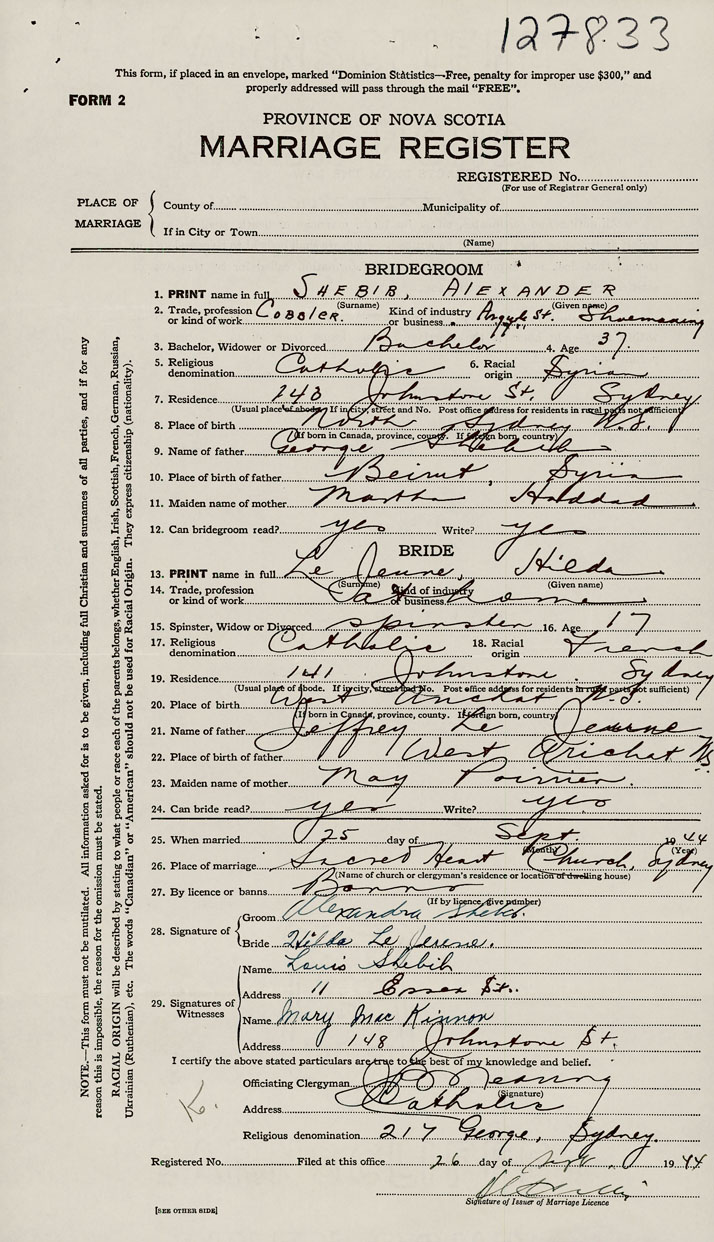 127833
This form, if placed in an envelope, marked "Dominion Statistics—Free, penalty for improper use $300," and
properly addressed will pass through the mail "FREE".
FORM 2
PROVINCE OF NOVA SCOTIA
MARRIAGE REGISTER
REGISTERED No.
(For use of Registrar General only)
PLACE OF MARRIAGE
County of Municipality of
If in City or Town
(Name)
BRIDEGROOM
1. PRINT name in full SHEBIB, ALEXANDER
(Surname) (Given name)
2. Trade, profession or kind of work Cobbler. Kind of industry or business Argyle St. Shoemaking
3. Bachelor, Widower or Divorced Bachelor 4. Age 37
5. Religious denomination Catholic 6. Racial origin Syrian
7. Residence 243 Johnstone St. Sydney
(Usual place of abode. If in city, street and No. Post office address for residents in rural parts not sufficient)
8. Place of birth North Sydney N.S.
(If born in Canada, province, county. If foreign born, country)
9. Name of father George Shebib
10. Place of birth of father Beirut, Syria
11. Maiden name of mother Martha Haddad
12. Can bridegroom read? yes Write? yes
BRIDE
13. PRINT name in full Le Jeune, Hilda
(Surname) (Given name)
14. Trade, profession or kind of work Kind of industry or business at home
15. Spinster, Widow or Divorced spinster 16. Age 17
17. Religious denomination Catholic 18. Racial origin French
19. Residence 141 Johnstone. Sydney
(Usual place of abode. If in city, street and No. Post office address for residents in rural parts not sufficient)
20. Place of birth West Arichat N.S.
(If born in Canada, province, county. If foreign born, country)
21. Name of father Jeffrey Le Jeune
22. Place of birth of father West Arichat N.S.
23. Maiden name of mother May Poirier.
24. Can bride read? yes Write? yes
25. When married 25 day of Sept. 1944
(Month) (Year)
26. Place of marriage Sacred Heart Church, Sydney
(Name of church or clergyman's residence or location of dwelling house)
27. By licence or banns Banns
(If by licence, give number)
28. Signature of
Groom Alexandra Shebib.
Bride Hilda Le Jeune.
29. Signatures of Witnesses
Name Louis Shebib
Address 11 Essex St.
Name Mary Mac Kinnon
Address 148 Johnstone St.
I certify the above stated particulars are true to the best of my knowledge and belief.
Officiating Clergyman
(Signature)
Address Catholic
Religious denomination 217 George, Sydney.
Registered No. Filed at this office 26 day of Sept. 1944
Signature of Issuer of Marriage Licence
[SEE OTHER SIDE]
NOTE.—This form must not be mutilated. All information asked for is to be given, including full Christian and surnames of all parties, and if for any
reason this is impossible, the reason for the omission must be stated.
RACIAL ORIGIN will be described by stating to what people or race each of the parents belongs, whether English, Irish, Scottish, French, German, Russian,
Ukrainian (Ruthenian), etc. The words "Canadian" or "American" should not be used for Racial Origin. They express citizenship (nationality).